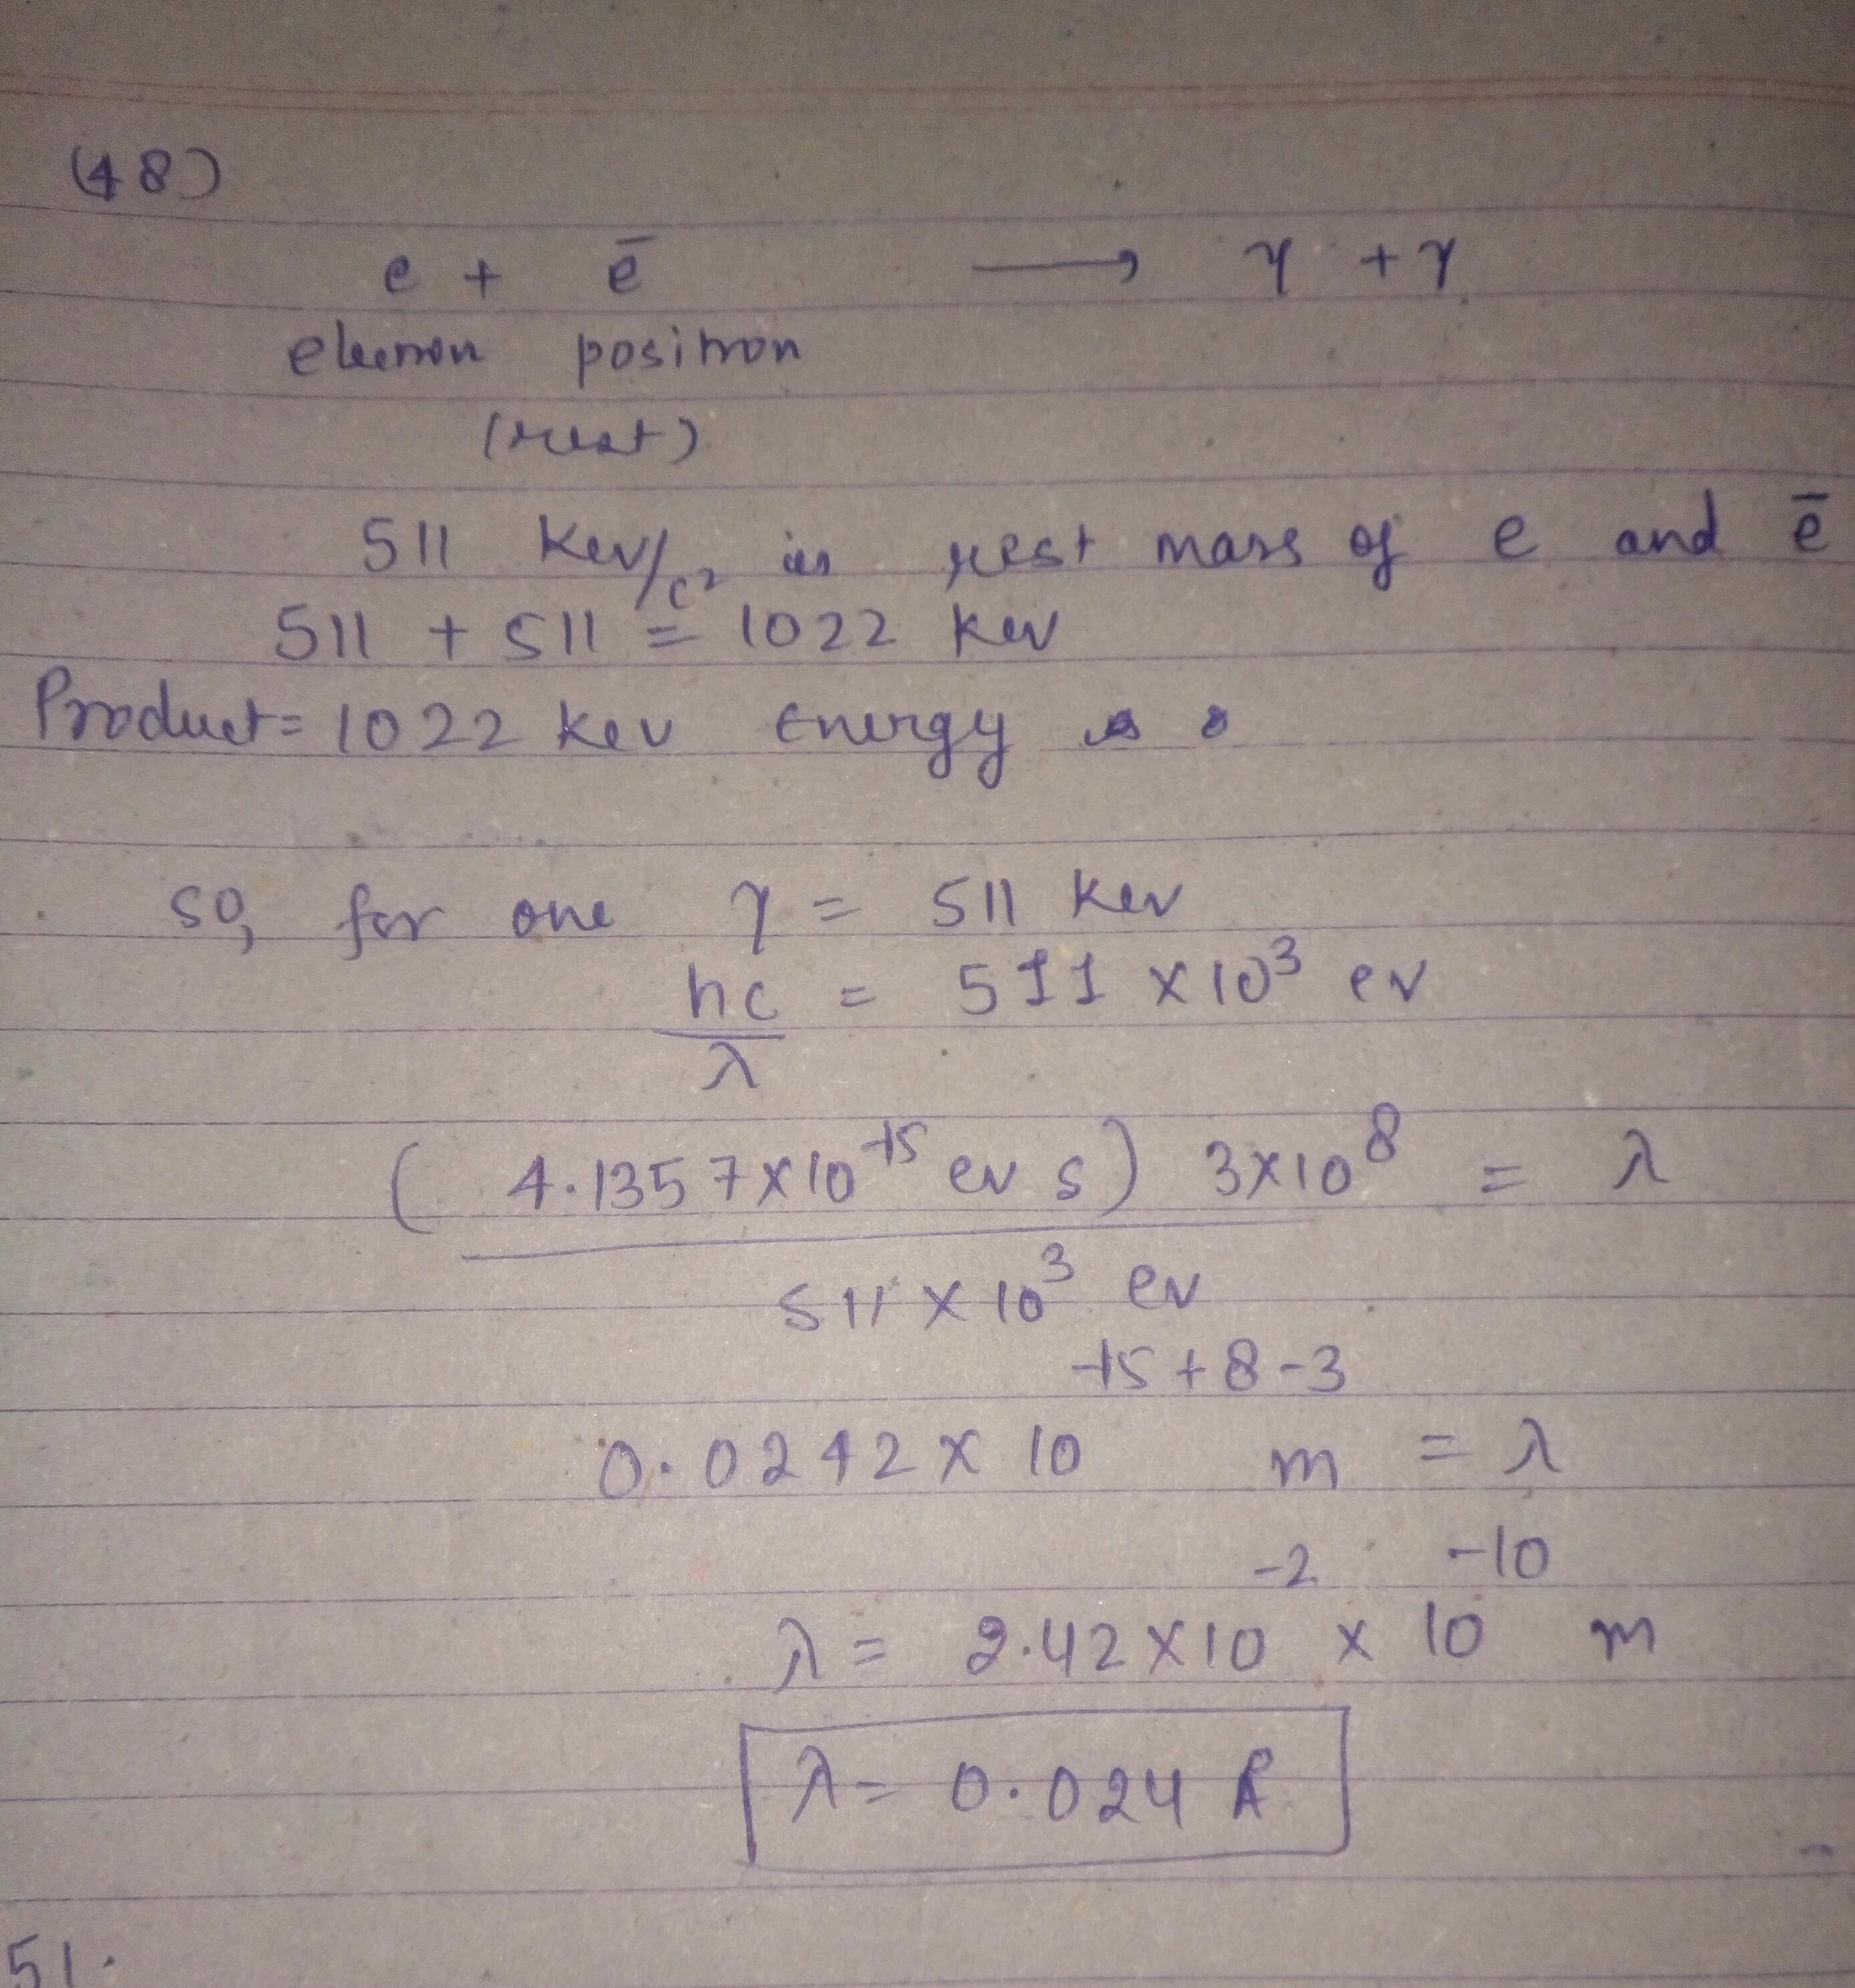 (48)
e + ē ⟶ γ + γ
electron positron
(rest)
511 Kev/c² is rest mass of e and ē
511 + 511 = 1022 Kev
Product = 1022 Kev Energy
so, for one γ = 511 Kev
hc/λ = 511 × 10³ ev
(4.1357×10⁻¹⁵ ev s) 3×10⁸ / 511 × 10³ ev = λ
0.0242 × 10⁻¹⁵⁺⁸⁻³ m = λ
λ = 2.42 × 10⁻² × 10⁻¹⁰ m
λ = 0.024 Å
51.